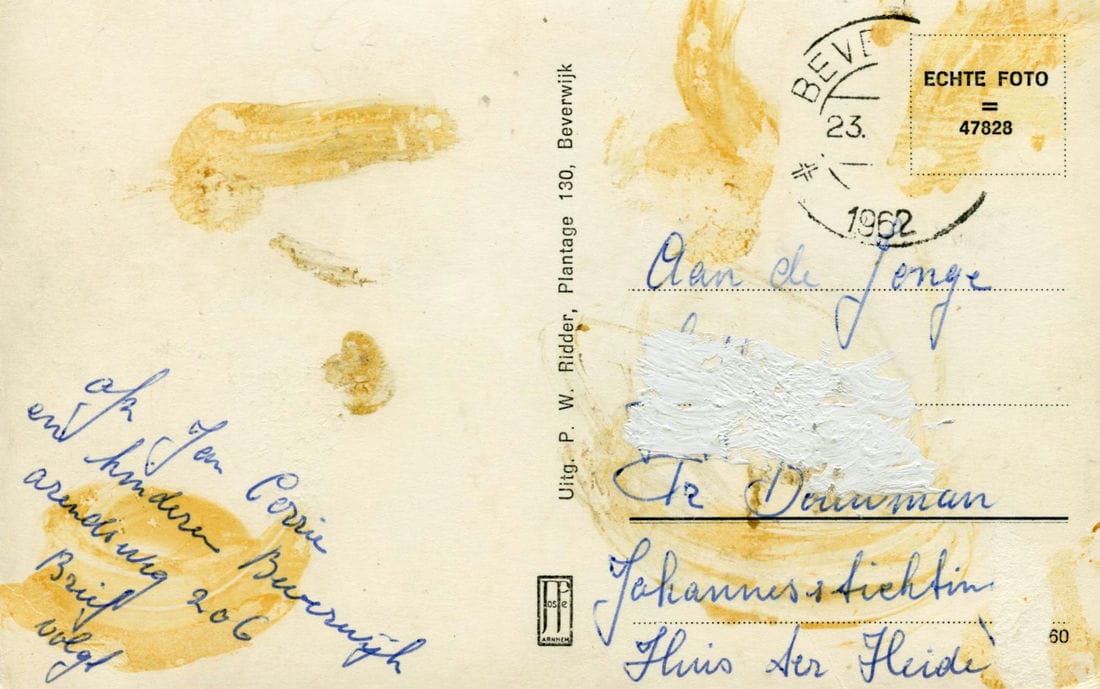 afz Jan Corrie
en kinderen Beverwijk
arendsweg 206
Brief
volgt
Uitg. P. W. Ridder, Plantage 130, Beverwijk
BEVE
23.
1962
ECHTE FOTO
=
47828
Aan de Jonge
Tr Douwman
Johannesstichtin
Huis ter Heide
60
ARNHEM